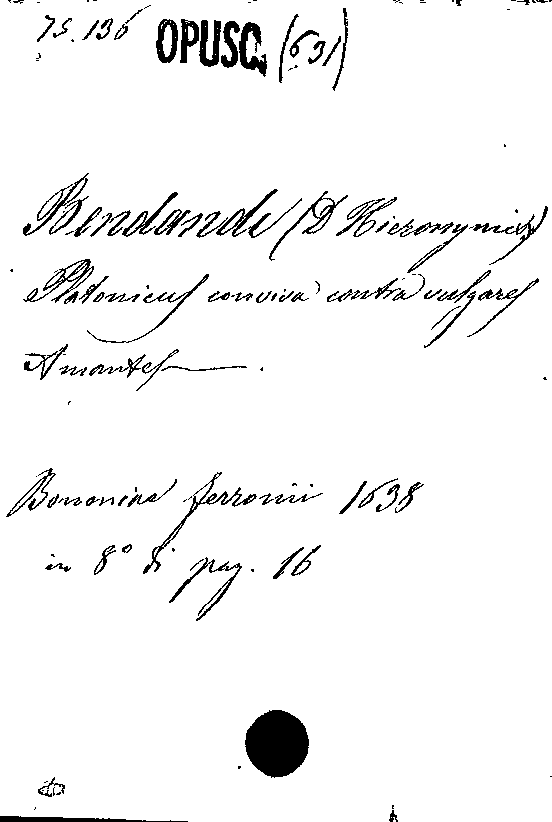 75.136 OPUSC. (631)
Bendandi (D Hieronymus)
Platonicus conviva contra vulgares
Amantes
Bononiae Ferronii 1638
in 8° di pag. 16